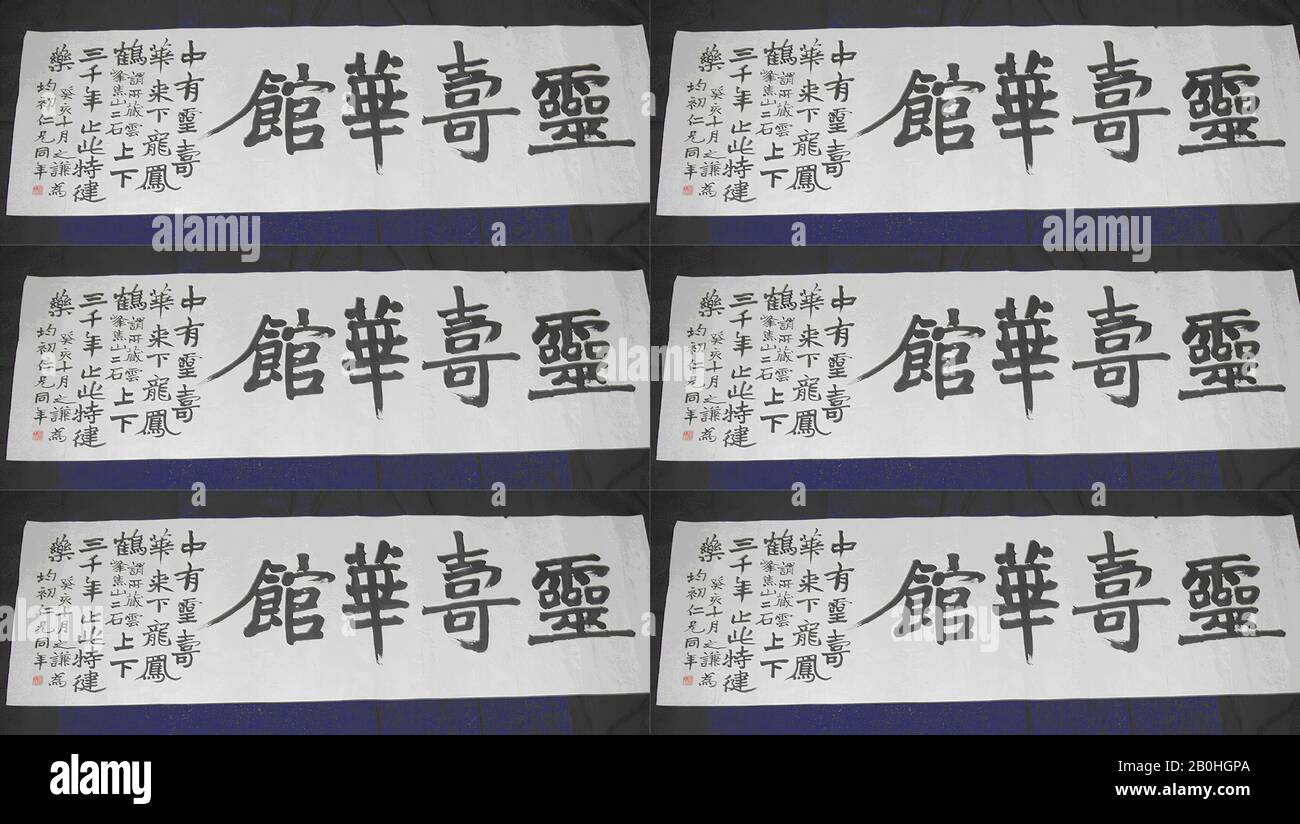 靈壽華館
中有靈壽
華來下龍鳳
鶴謂所藏雲峯焦山二石上下
三千年止此特健
藥癸亥十月之謙為
均初仁兄同年
靈壽華館
中有靈壽
華來下龍鳳
鶴謂所藏雲峯焦山二石上下
三千年止此特健
藥癸亥十月之謙為
均初仁兄同年
靈壽華館
中有靈壽
華來下龍鳳
鶴謂所藏雲峯焦山二石上下
三千年止此特健
藥癸亥十月之謙為
均初仁兄同年
靈壽華館
中有靈壽
華來下龍鳳
鶴謂所藏雲峯焦山二石上下
三千年止此特健
藥癸亥十月之謙為
均初仁兄同年
靈壽華館
中有靈壽
華來下龍鳳
鶴謂所藏雲峯焦山二石上下
三千年止此特健
藥癸亥十月之謙為
均初仁兄同年
靈壽華館
中有靈壽
華來下龍鳳
鶴謂所藏雲峯焦山二石上下
三千年止此特健
藥癸亥十月之謙為
均初仁兄同年
alamy
alamy
a
a
a
a
a
a
alamy
Image ID: 2B0HGPA
www.alamy.com